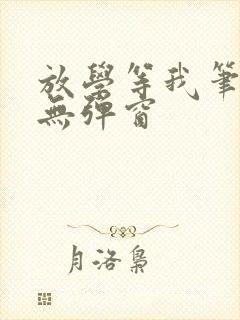 放學等我筆
無彈窗
月洛梟